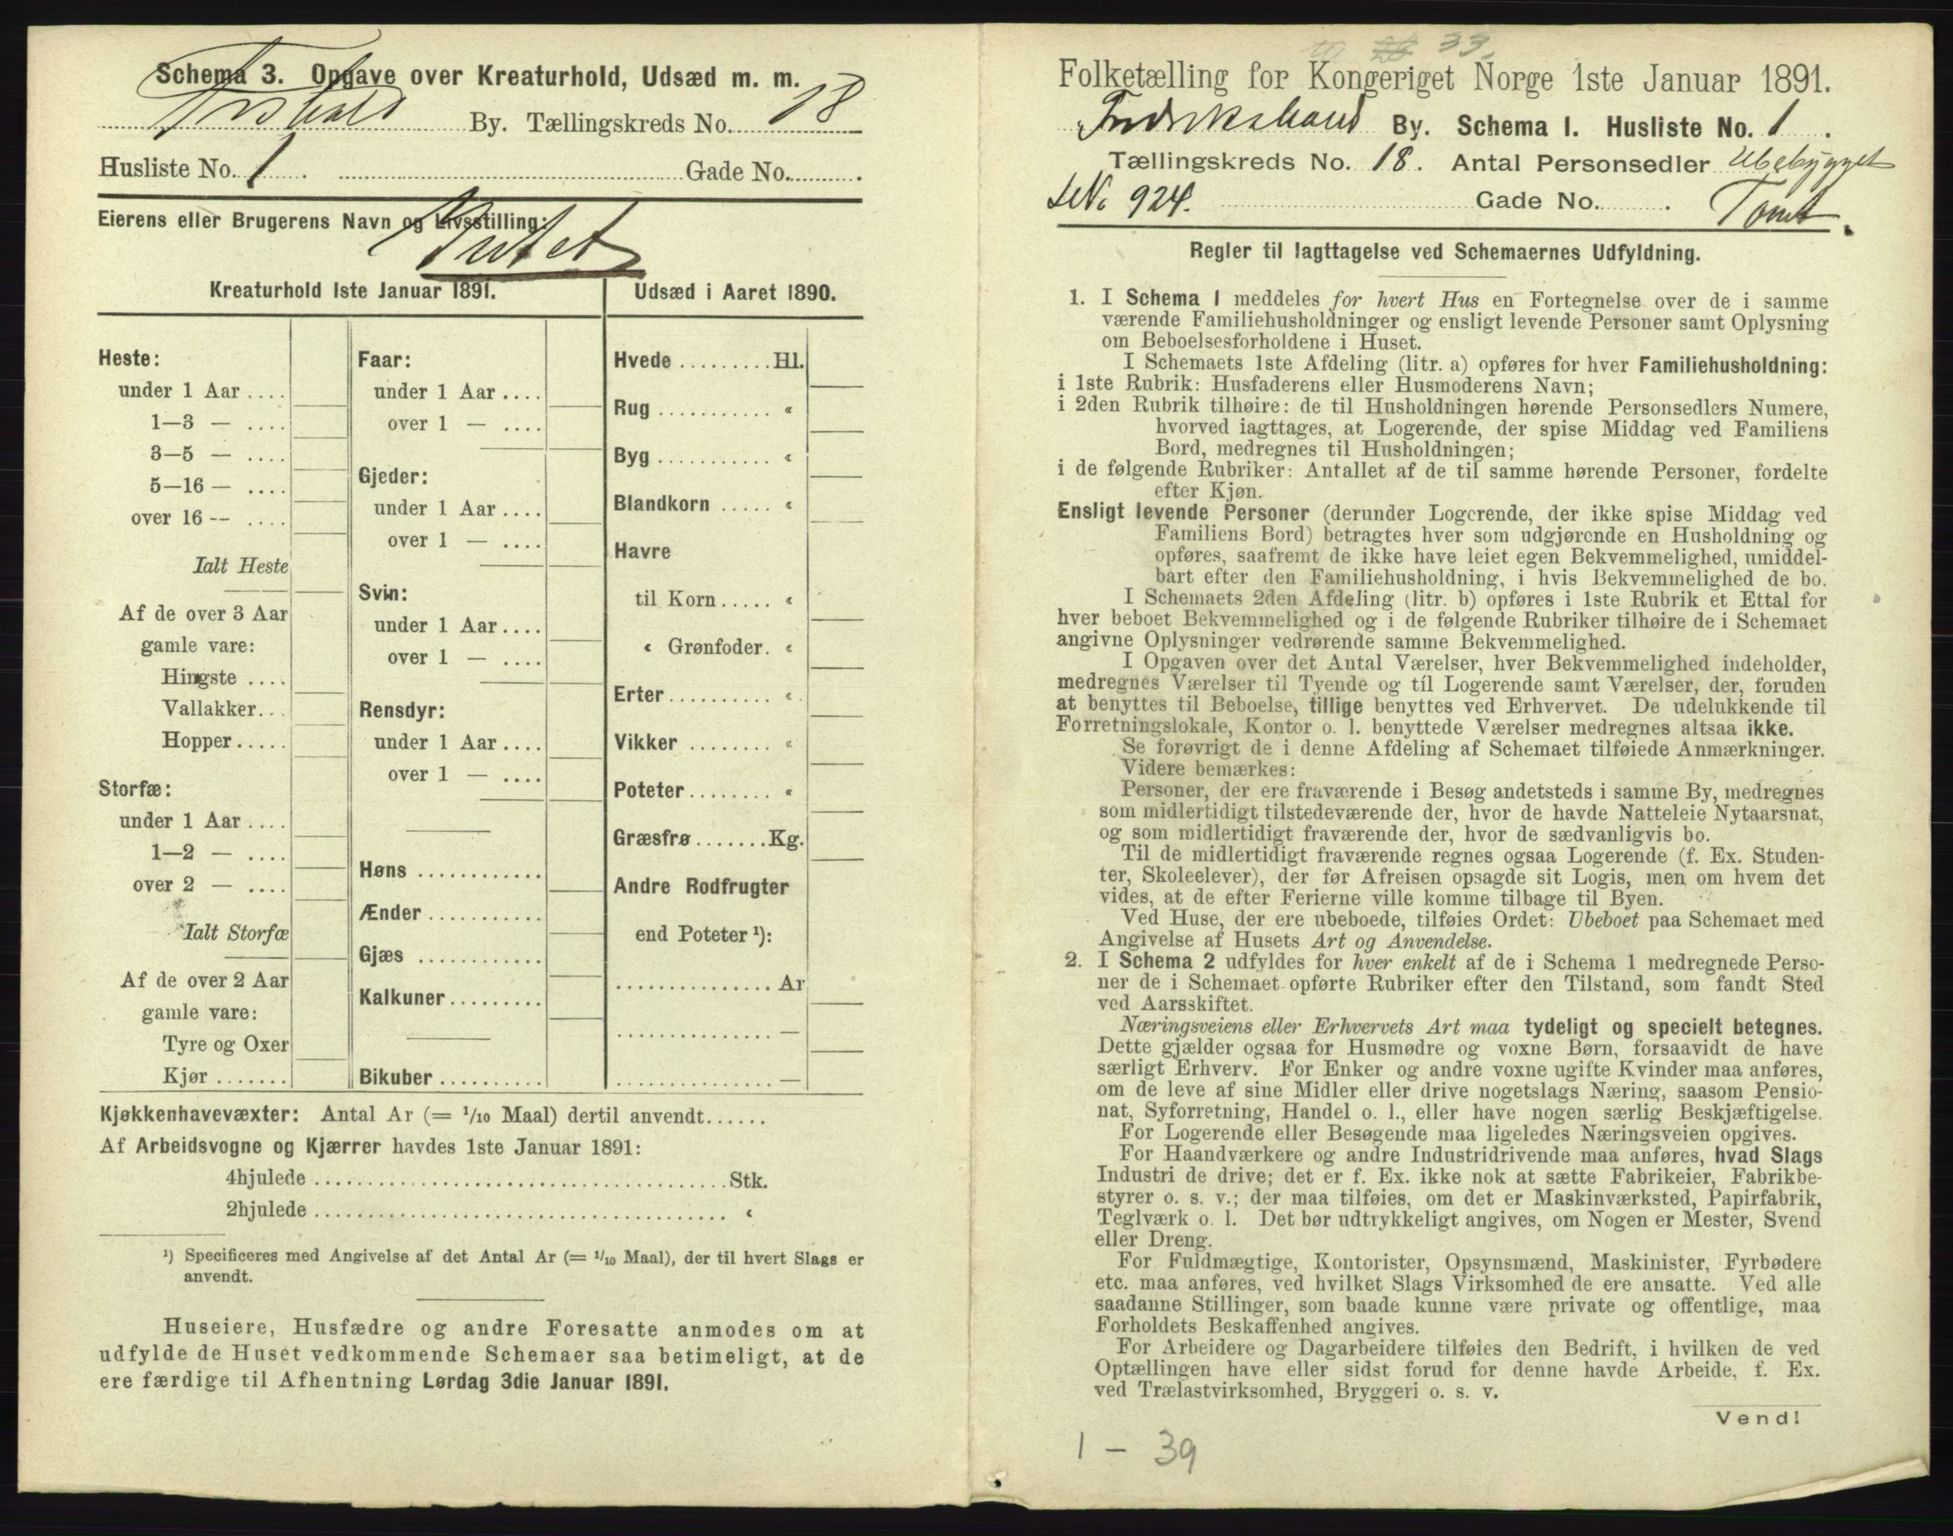 Schema 3. Opgave over Kreaturhold, Udsæd m. m.
Frshald By. Tællingskreds No. 18
Husliste No. 1. Gade No. .
Eierens eller Brugerens Navn og Livsstilling:
Intet
Kreaturhold 1ste Januar 1891.
Heste:
under 1 Aar ....
1—3 — ....
3—5 — ....
5—16 — ....
over 16 -- ....
Ialt Heste
Af de over 3 Aar
gamle vare:
Hingste ....
Vallakker...
Hopper.....
Storfæ:
under 1 Aar ....
1—2 — ....
over 2 — ....
Ialt Storfæ
Af de over 2 Aar
gamle vare:
Tyre og Oxer
Kjør .......
Faar:
under 1 Aar ....
over 1 — ....
Gjeder:
under 1 Aar ....
over 1 — ....
Svin:
under 1 Aar ....
over 1 — ....
Rensdyr:
under 1 Aar ....
over 1 — ....
Høns ............
Ænder ...........
Gjæs ............
Kalkuner.........
Bikuber ..........
Udsæd i Aaret 1890.
Hvede ......... Hl.
Rug ........... «
Byg ........... «
Blandkorn ..... «
Havre
til Korn ..... «
« Grønfoder. «
Erter .......... «
Vikker ......... «
Poteter ........ «
Græsfrø ....... Kg.
Andre Rodfrugter
end Poteter ¹):
............... Ar
............... —
............... —
Kjøkkenhavevæxter: Antal Ar (= ¹/₁₀ Maal) dertil anvendt......
Af Arbeidsvogne og Kjærrer havdes 1ste Januar 1891:
4hjulede ........................................ Stk.
2hjulede ........................................ «
¹) Specificeres med Angivelse af det Antal Ar (= ¹/₁₀ Maal), der til hvert Slags er
anvendt.
Huseiere, Husfædre og andre Foresatte anmodes om at
udfylde de Huset vedkommende Schemaer saa betimeligt, at de
ere færdige til Afhentning Lørdag 3die Januar 1891.
33
Folketælling for Kongeriget Norge 1ste Januar 1891.
Fredrikshald By. Schema 1. Husliste No. 1.
Tællingskreds No. 18. Antal Personsedler Ubebygget
LNo 924. Gade No. . Tomt.
Regler til Iagttagelse ved Schemaernes Udfyldning.
1. I Schema 1 meddeles for hvert Hus en Fortegnelse over de i samme
værende Familiehusholdninger og ensligt levende Personer samt Oplysning
om Beboelsesforholdene i Huset.
I Schemaets 1ste Afdeling (litr. a) opføres for hver Familiehusholdning:
i 1ste Rubrik: Husfaderens eller Husmoderens Navn;
i 2den Rubrik tilhøire: de til Husholdningen hørende Personsedlers Numere,
hvorved iagttages, at Logerende, der spise Middag ved Familiens
Bord, medregnes til Husholdningen;
i de følgende Rubriker: Antallet af de til samme hørende Personer, fordelte
efter Kjøn.
Ensligt levende Personer (derunder Logerende, der ikke spise Middag ved
Familiens Bord) betragtes hver som udgjørende en Husholdning og
opføres, saafremt de ikke have leiet egen Bekvemmelighed, umiddel-
bart efter den Familiehusholdning, i hvis Bekvemmelighed de bo.
I Schemaets 2den Afdeling (litr. b) opføres i 1ste Rubrik et Ettal for
hver beboet Bekvemmelighed og i de følgende Rubriker tilhøire de i Schemaet
angivne Oplysninger vedrørende samme Bekvemmelighed.
I Opgaven over det Antal Værelser, hver Bekvemmelighed indeholder,
medregnes Værelser til Tyende og til Logerende samt Værelser, der, foruden
at benyttes til Beboelse, tillige benyttes ved Erhvervet. De udelukkende til
Forretningslokale, Kontor o. l. benyttede Værelser medregnes altsaa ikke.
Se forøvrigt de i denne Afdeling af Schemaet tilføiede Anmærkninger.
Videre bemærkes:
Personer, der ere fraværende i Besøg andetsteds i samme By, medregnes
som midlertidigt tilstedeværende der, hvor de havde Natteleie Nytaarsnat,
og som midlertidigt fraværende der, hvor de sædvanligvis bo.
Til de midlertidigt fraværende regnes ogsaa Logerende (f. Ex. Studen-
ter, Skoleelever), der før Afreisen opsagde sit Logis, men om hvem det
vides, at de efter Ferierne ville komme tilbage til Byen.
Ved Huse, der ere ubeboede, tilføies Ordet: Ubeboet paa Schemaet med
Angivelse af Husets Art og Anvendelse.
2. I Schema 2 udfyldes for hver enkelt af de i Schema 1 medregnede Perso-
ner de i Schemaet opførte Rubriker efter den Tilstand, som fandt Sted
ved Aarsskiftet.
Næringsveiens eller Erhvervets Art maa tydeligt og specielt betegnes.
Dette gjælder ogsaa for Husmødre og voxne Børn, forsaavidt de have
særligt Erhverv. For Enker og andre voxne ugifte Kvinder maa anføres,
om de leve af sine Midler eller drive nogetslags Næring, saasom Pensio-
nat, Syforretning, Handel o. l., eller have nogen særlig Beskjæftigelse.
For Logerende eller Besøgende maa ligeledes Næringsveien opgives.
For Haandværkere og andre Industridrivende maa anføres, hvad Slags
Industri de drive; det er f. Ex. ikke nok at sætte Fabrikeier, Fabrikbe-
styrer o. s. v.; der maa tilføies, om det er Maskinværksted, Papirfabrik,
Teglværk o. l. Det bør udtrykkeligt angives, om Nogen er Mester, Svend
eller Dreng.
For Fuldmægtige, Kontorister, Opsynsmænd, Maskinister, Fyrbødere
etc. maa anføres, ved hvilket Slags Virksomhed de ere ansatte. Ved alle
saadanne Stillinger, som baade kunne være private og offentlige, maa
Forholdets Beskaffenhed angives.
For Arbeidere og Dagarbeidere tilføies den Bedrift, i hvilken de ved
Optællingen have eller sidst forud for denne havde Arbeide, f. Ex.
ved Trælastvirksomhed, Bryggeri o. s. v.
Vend!
1 - 39